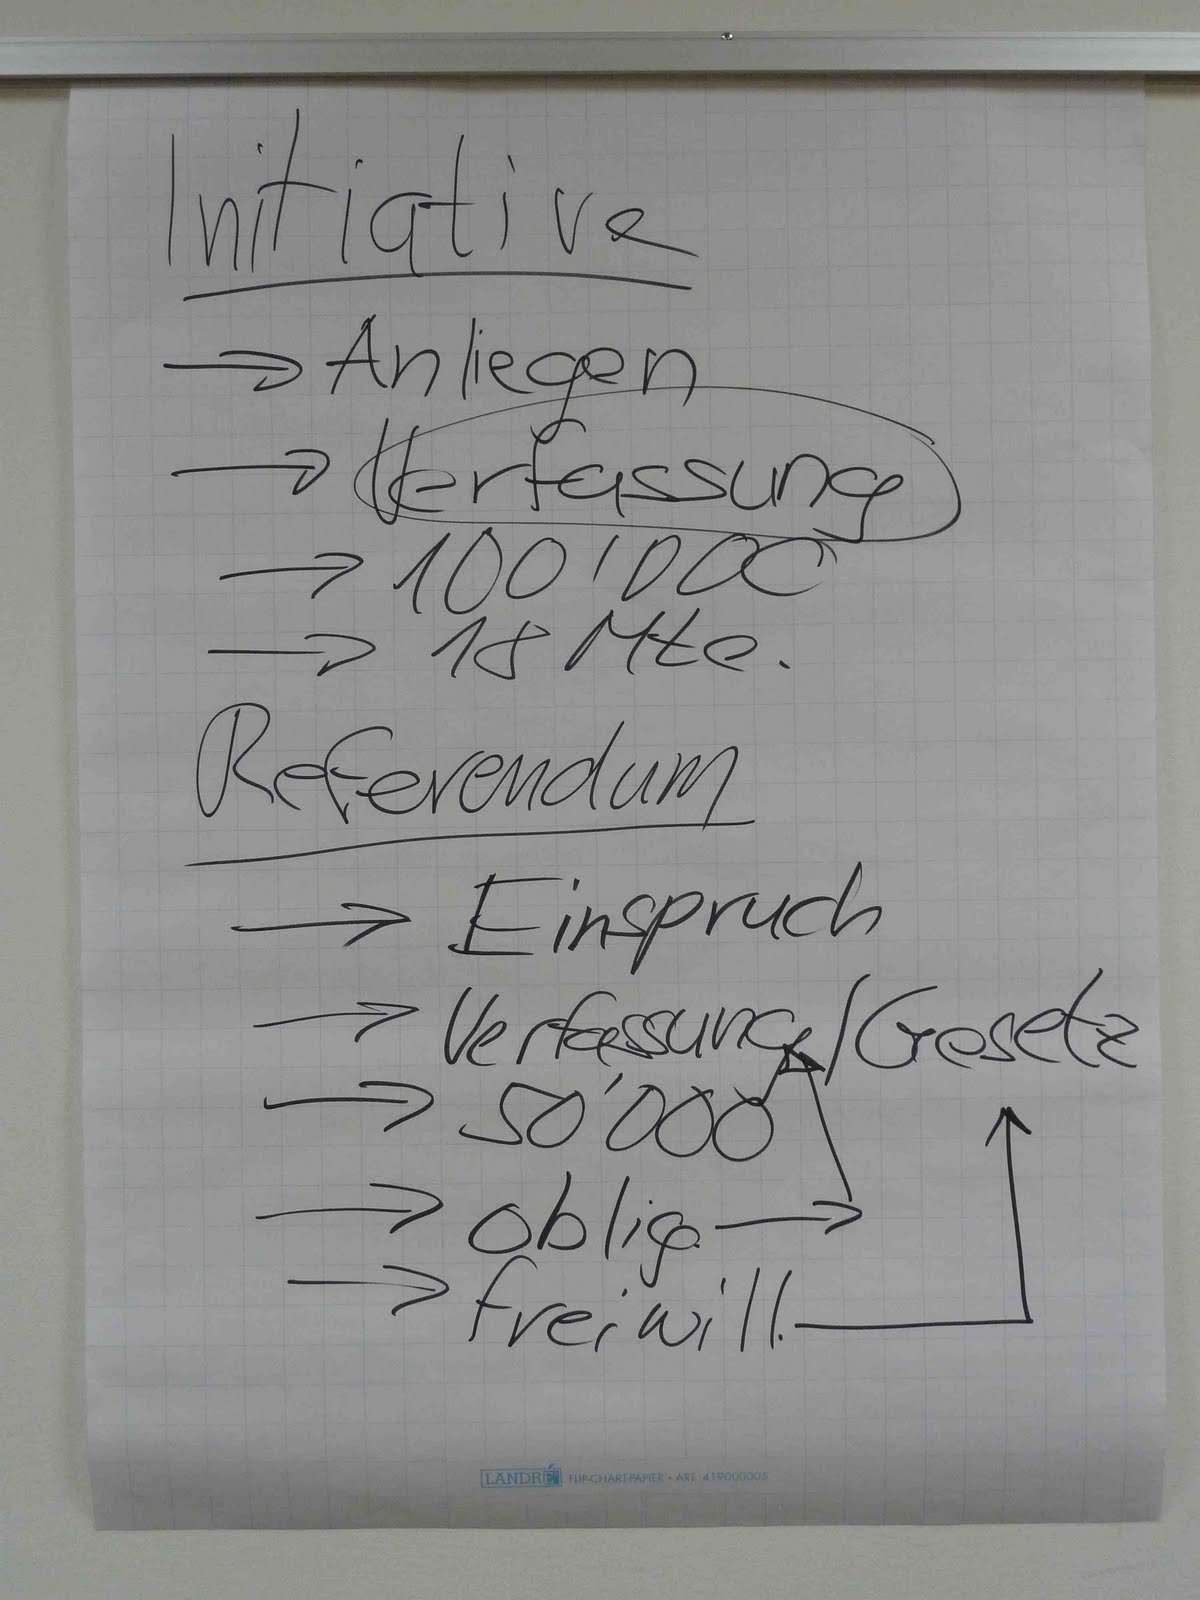 Initiative
→ Anliegen
→ Verfassung
→ 100'000
→ 18 Mte.
Referendum
→ Einspruch
→ Verfassung/Gesetz
→ 50'000
→ oblig. →
→ freiwill.
LANDRÉ FLIP-CHART-PAPIER • ART. 419000005